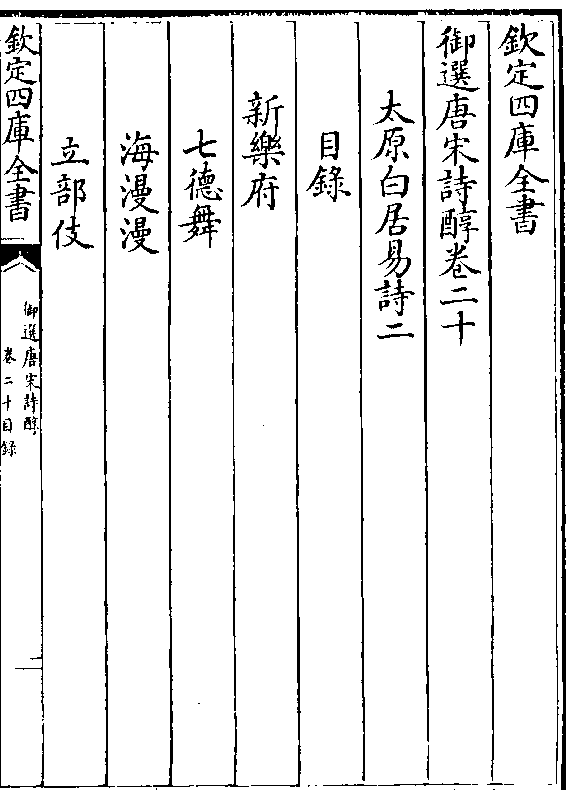 欽定四庫全書
御選唐宋詩醇卷二十
太原白居易詩二
目錄
新樂府
七德舞
海漫漫
立部伎
欽定四庫全書
御選唐宋詩醇
卷二十目錄
一